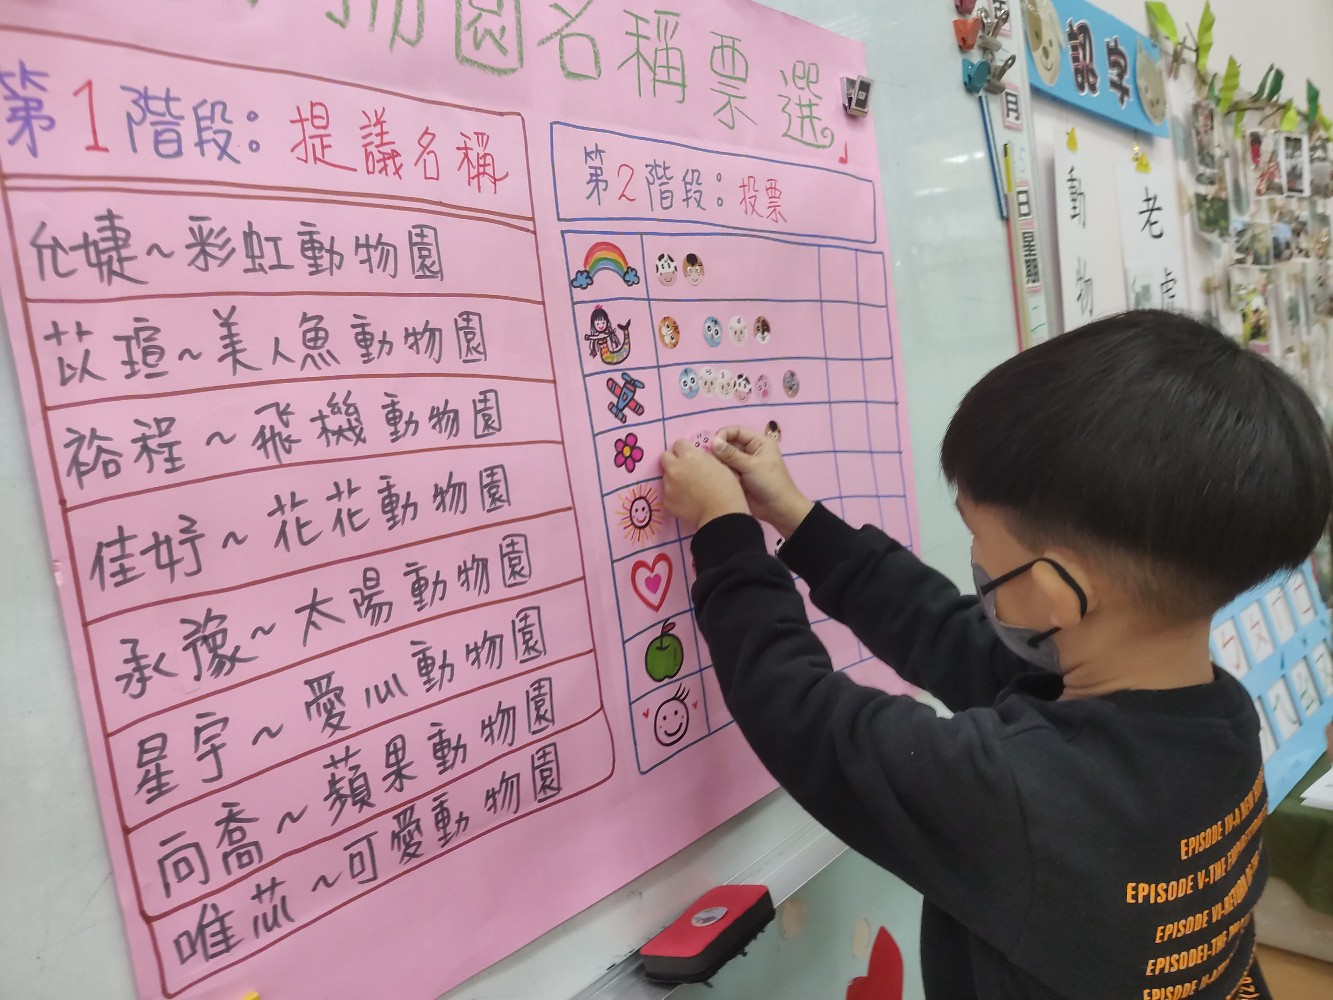 物園名稱票選
第1階段:提議名稱
允婕~彩虹動物園
苡瑄~美人魚動物園
裕程~飛機動物園
佳妤~花花動物園
承豫~太陽動物園
星宇~愛心動物園
向喬~蘋果動物園
唯芯~可愛動物園
第2階段:投票
月
日
星期
認字
動物
老虎
EPISODE IV-A NEW
EPISODE V-THE
EPISODE VI-RETURN
EPISODE I-THE
EPISODE II-